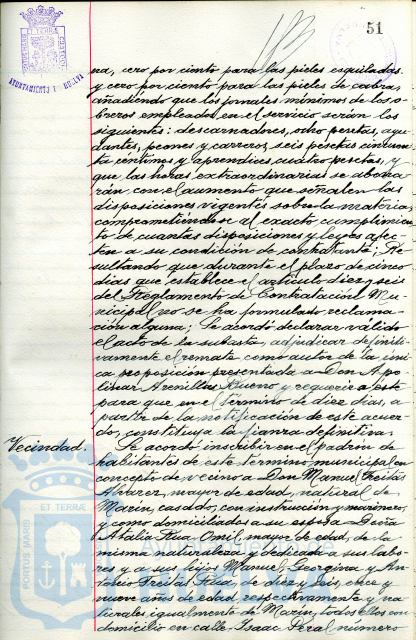 51
AYUNTAMIENTO DE HUELVA
na, cero por ciento para las pieles esquiladas
y cero por ciento para las pieles de cabras,
añadiendo que los jornales mínimos de los o-
breros empleados en el servicio serán los
siguientes: descarnadores, ocho pesetas, ayu-
dantes, peones y carreros, seis pesetas cincuen-
ta céntimos y aprendices cuatro pesetas, y
que las horas extraordinarias se abona-
rán con el aumento que señalen las
disposiciones vigentes sobre la materia,
comprometiéndose al exacto cumplimien-
to de cuantas disposiciones y leyes afec-
ten a su condición de contratante; Re-
sultando que durante el plazo de cinco
días que establece el artículo diez y seis
del Reglamento de Contratación Mu-
nicipal no se ha formulado reclama-
ción alguna; Se acordó declarar válido
el acto de la subasta, adjudicar definiti-
vamente el remate como autor de la úni-
ca proposición presentada a Don Apo-
linar Arenillas Bueno y requerir a éste
para que en el término de diez días, a
partir de la notificación de este acuer-
do, constituya la fianza definitiva.
Vecindad.
Se acordó inscribir en el padrón de
habitantes de este término municipal en
concepto de vecino a Don Manuel Freitas
Alvarez, mayor de edad, natural de
Marín, casado, con instrucción y marinero,
y como domiciliados a su esposa Doña
Atalia Rúa Omil, mayor de edad, de la
misma naturaleza y dedicada a sus labo-
res y a sus hijos Manuel, Georgina y An-
tonio Freitas Rúa, de diez y seis, once y
nueve años de edad respectivamente y na-
turales igualmente de Marín, todos ellos con
domicilio en calle Isaac Peral número
PORTUS MARIS ET TERRÆ